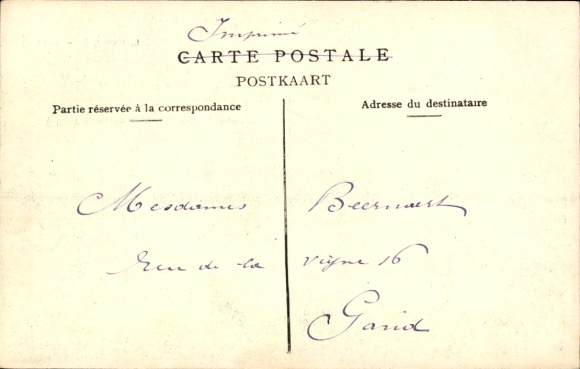 Imprimé
CARTE POSTALE
POSTKAART
Partie réservée à la correspondance
Adresse du destinataire
Mesdames Beernaert
Rue de la vigne 16
Gand